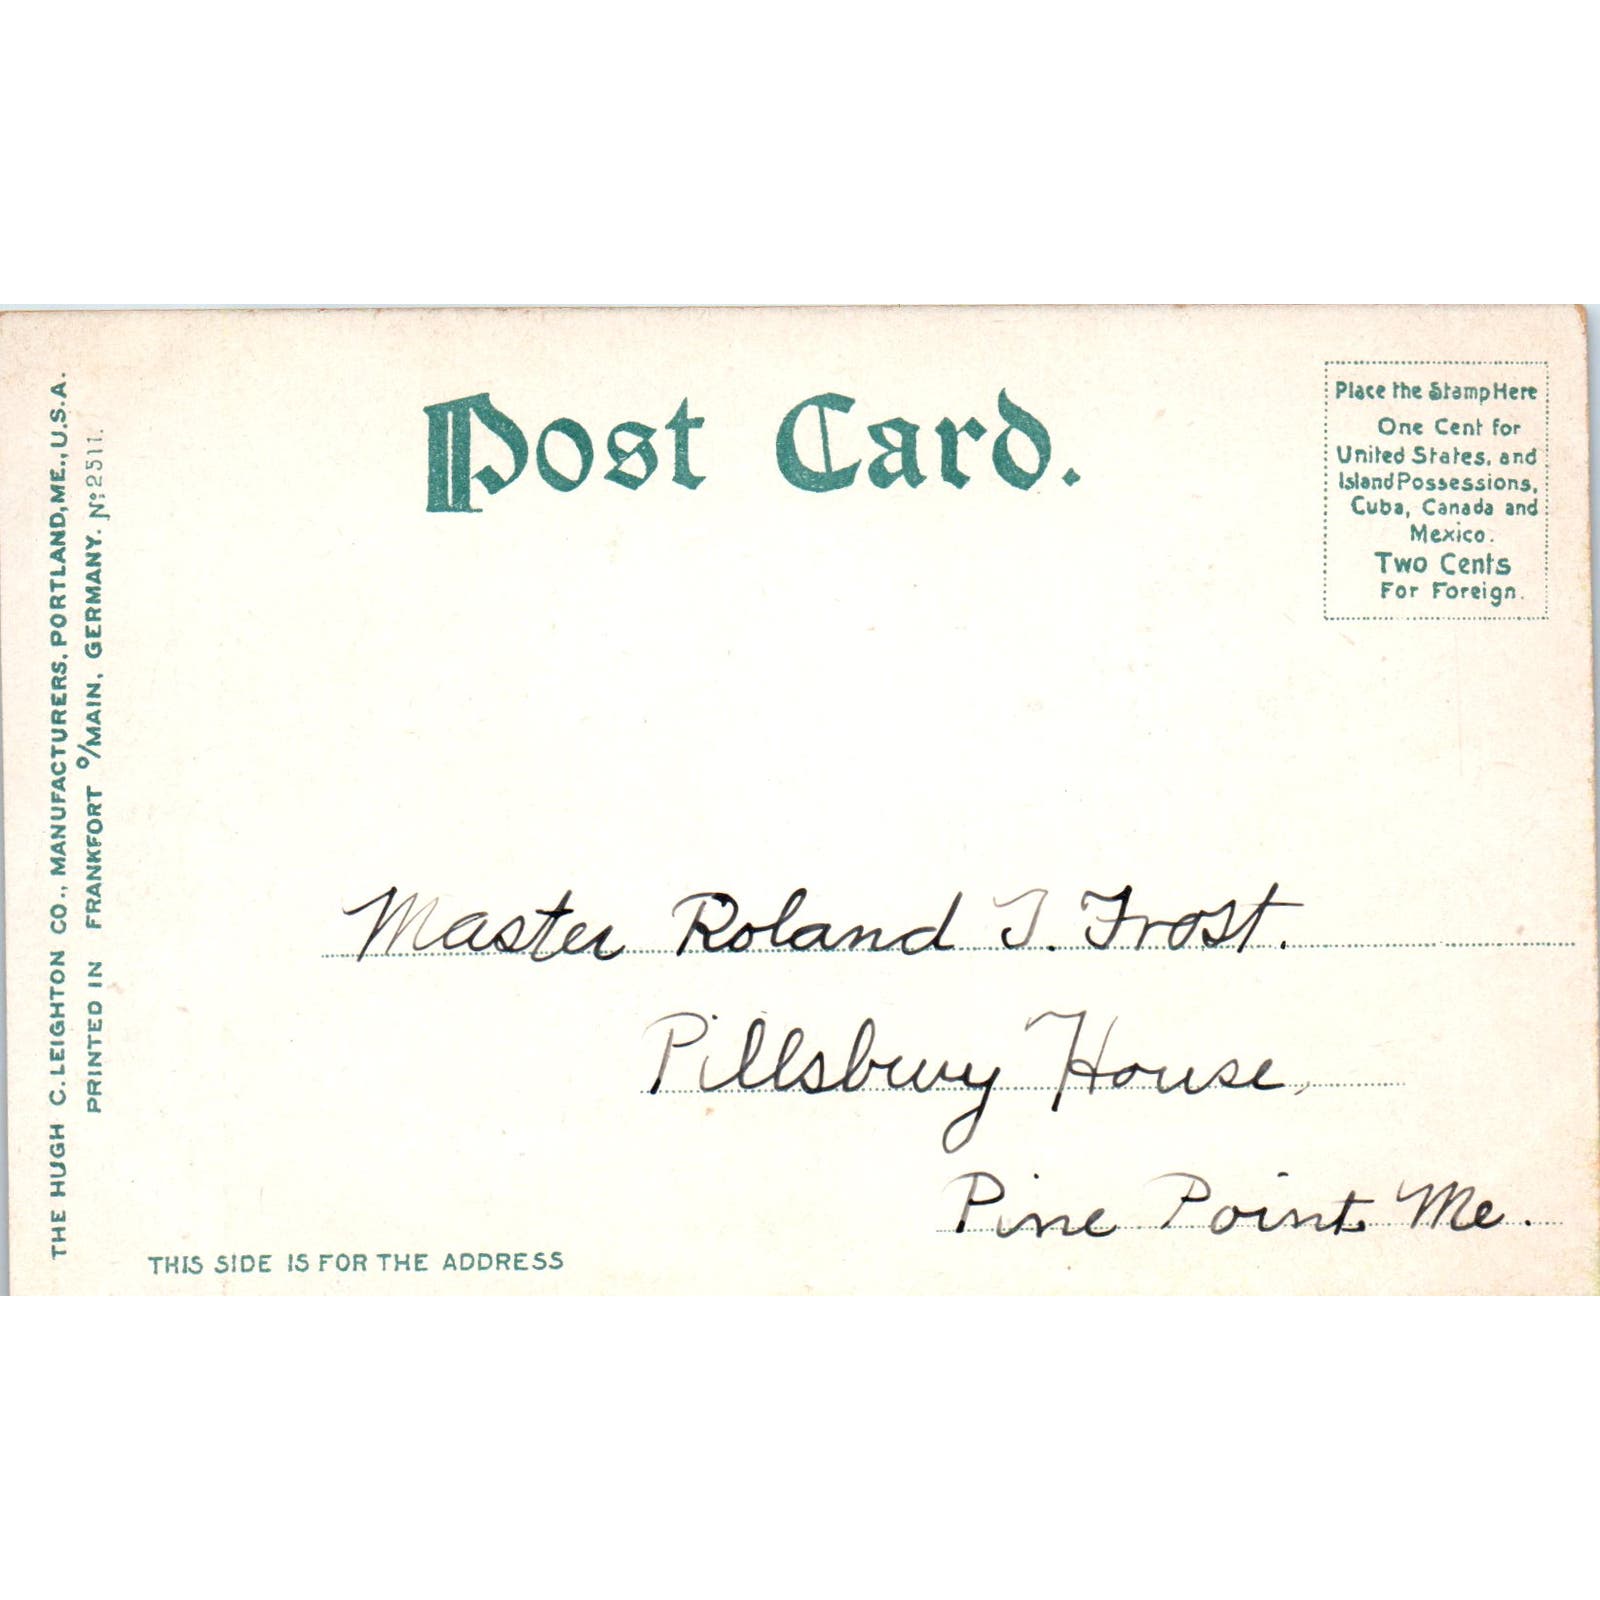 Post Card.
Place the Stamp Here
One Cent for
United States, and
Island Possessions,
Cuba, Canada and
Mexico.
Two Cents
For Foreign.
THE HUGH C. LEIGHTON CO., MANUFACTURERS, PORTLAND, ME., U.S.A.
PRINTED IN FRANKFORT O/MAIN, GERMANY. No 2511.
Master Roland T. Frost.
Pillsbury House,
Pine Point Me.
THIS SIDE IS FOR THE ADDRESS